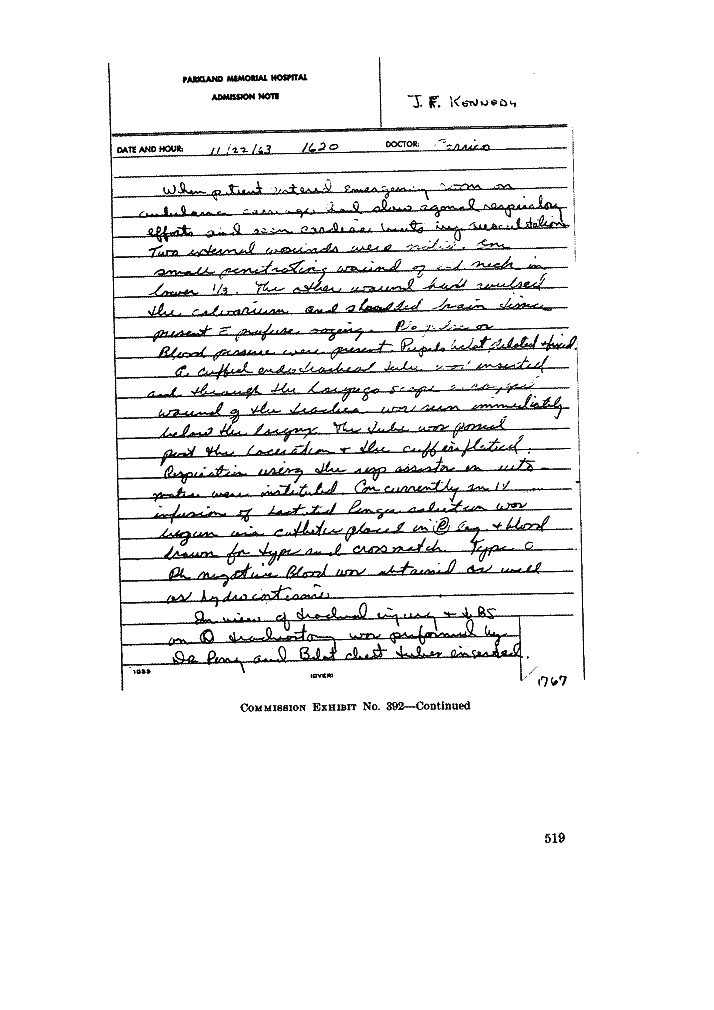 PARKLAND MEMORIAL HOSPITAL
ADMISSION NOTE
J. F. KENNEDY
DATE AND HOUR: 11/22/63 1620 DOCTOR: Carrico
When patient entered emergency room on
ambulance carriage had slow agonal respiratory
efforts and
Two external wounds were noted. One
small penetrating wound of neck in
lower 1/3. The other wound had avulsed
the calvarium and shredded brain tissue
present c̄ profuse oozing. No pulse or
Blood pressure were present. Pupils dilated + fixed.
A cuffed endotracheal tube was inserted
and through the laryngoscope a
wound of the trachea was seen immediately
below the larynx. The tube was passed
past the laceration + the cuff inflated.
Respiration using the resp assistor on auto-
matic were instituted. Concurrently an IV
infusion of lactated Ringer solution was
begun via catheter placed in Ⓡ leg + blood
drawn for type and crossmatch. Type O
Rh negative Blood was obtained as well
as hydrocortisone.
In view of tracheal injury + ↓ BS
on Ⓡ tracheostomy was preformed by
Dr Perry and Bilat chest tubes inserted.
1055
(OVER)
1767
COMMISSION EXHIBIT No. 392—Continued
519